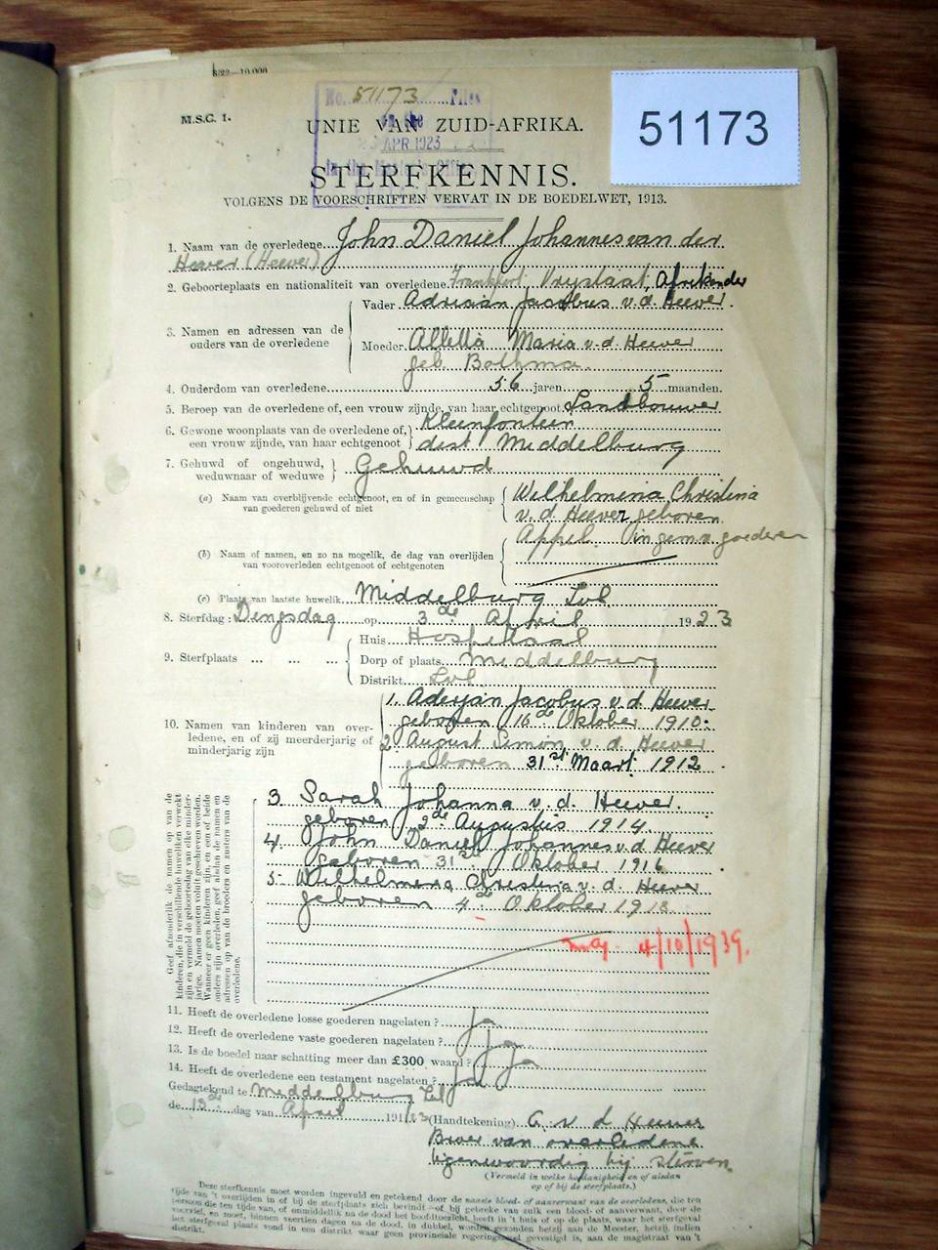 8/22—10,000
No. 51173 Filed
in the
APR 1923
In the Master's Office
51173
M.S.C. 1.
UNIE VAN ZUID-AFRIKA.
STERFKENNIS.
VOLGENS DE VOORSCHRIFTEN VERVAT IN DE BOEDELWET, 1913.
1. Naam van de overledene John Daniel Johannes van der
Heever (Heever)
2. Geboorteplaats en nationaliteit van overledene Frankfort Vrystaat Afrikander
3. Namen en adressen van de ouders van de overledene
Vader Adriaan Jacobus v.d. Heever.
Moeder Alletta Maria v.d. Heever
geb. Bothma.
4. Ouderdom van overledene 56 jaren 5 maanden.
5. Beroep van de overledene of, een vrouw zijnde, van haar echtgenoot Landbouwer
6. Gewone woonplaats van de overledene of, Kleinfontein
een vrouw zijnde, van haar echtgenoot dist Middelburg
7. Gehuwd of ongehuwd, weduwnaar of weduwe Gehuwd
(a) Naam van overblijvende echtgenoot, en of in gemeenschap van goederen gehuwd of niet
Wilhelmina Christina
v. d. Heever geboren
Appel. in gemn goederen
(b) Naam of namen, en zo na mogelik, de dag van overlijden
van vooroverleden echtgenoot of echtgenoten
(c) Plaats van laatste huwelik Middelburg Tvl
8. Sterfdag: Dingsdag op 3de April 1923
9. Sterfplaats ... ... ...
Huis Hospitaal
Dorp of plaats Middelburg
Distrikt Tvl.
10. Namen van kinderen van overledene, en of zij meerderjarig of minderjarig zijn
1. Aderjan Jacobus v.d. Heever
geboren 16de Oktober 1910.
2 August Simon v. d. Heever
geboren 31st Maart 1912
Geef afzonderlik de namen op van de
kinderen, die in verschillende huweliken verwekt
zijn en vermeld de geboortedag van elke minder-
jarige. Namen moeten voluit geschreven worden.
Wanneer er geen kinderen zijn, en een of beide
ouders zijn overleden, geef alsdan de namen en
adressen op van de broeders en zusters van de
overledene.
3. Sarah Johanna v. d. Heever.
geboren 2de Augustus 1914.
4. John Daniel Johannes v.d. Heever
geboren 31st Oktober 1916
5. Wilhelmena Christina v. d. Heever
geboren 4de Oktober 1918
4/10/1939.
11. Heeft de overledene losse goederen nagelaten? Ja
12. Heeft de overledene vaste goederen nagelaten? Ja
13. Is de boedel naar schatting meer dan £300 waard? Ja
14. Heeft de overledene een testament nagelaten? Ja
Gedagtekend te Middelburg Tvl
de 13de dag van April 1923
(Handtekening) A v d Heever
Broer van overledene
tegenwoordig bij sterven.
(Vermeld in welke hoedanigheid en of alsdan
op of bij de sterfplaats.)
Deze sterfkennis moet worden ingevuld en getekend door de naaste bloed- of aanverwant van de overledene, die ten
tijde van 't overlijden in of bij de sterfplaats zich bevindt of bij gebreke van zulk een bloed- of aanverwant, door de
persoon die ten tijde van, of onmiddellik na de dood het hoofdtoezicht heeft in 't huis of op de plaats, waar het sterfgeval
voorviel, en moet, binnen veertien dagen na de dood, in dubbel, worden gezonden hetzij aan de Meester, hetzij, indien
het sterfgeval plaats vond in een distrikt waar geen provinciale regering gevestigd is, aan de magistraat van 't
distrikt.